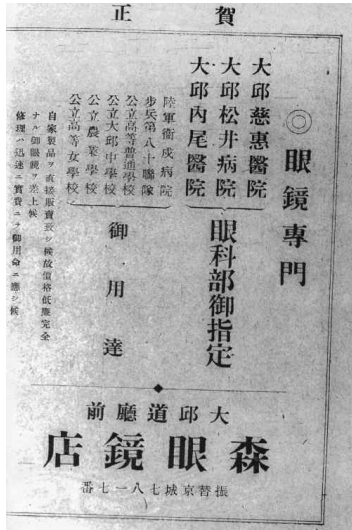 賀正
◎眼鏡專門
大邱慈惠醫院
大邱松井病院
大邱內尾醫院
眼科部御指定
陸軍衞戍病院
步兵第八十聯隊
公立高等普通學校
公立大邱中學校
公立農業學校
公立高等女學校
御用達
自家製品ヲ直接販賣致シ候故價格低廉完全
ナル御眼鏡ヲ差上候
修理ハ迅速ニ實費ニテ御用命ニ應シ候
大邱道廳前
森眼鏡店
振替京城七八一七番